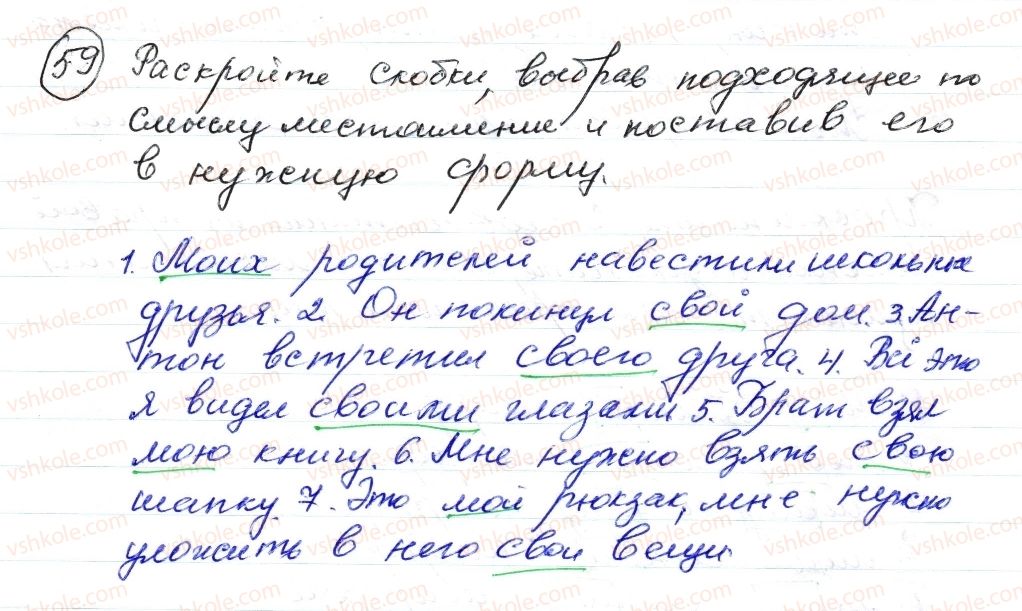 59 Раскройте скобки, выбрав подходящее по
смыслу местоимение и поставив его
в нужную форму.
1. Моих родителей навестили школьные
друзья. 2. Он покинул свой дом. 3. Ан-
тон встретил своего друга. 4. Всё это
я видел своими глазами 5. Брат взял
мою книгу. 6. Мне нужно взять свою
шапку 7. Это мой рюкзак, мне нужно
уложить в него свои вещи